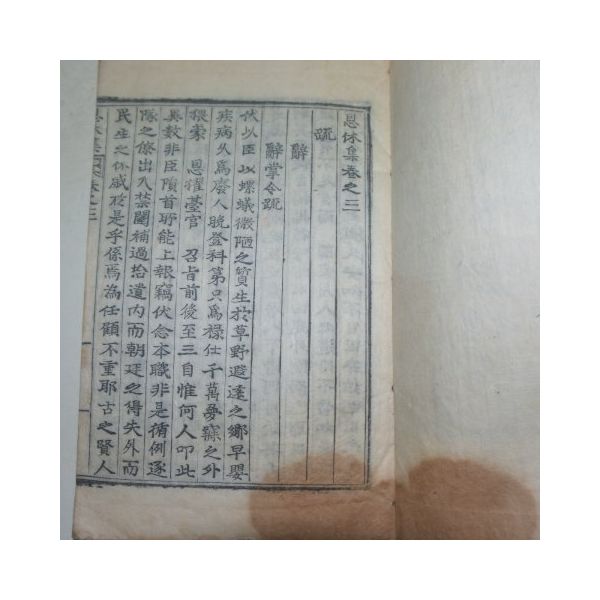 恩休集卷之三
疏
辭掌令疏
伏以臣以螻蟻微陋之質生於草野遐遠之鄕早嬰
疾病久爲廢人晩登科第只爲祿仕千萬夢寐之外
猥蒙 恩擢臺官 召旨前後至三自惟何人叨此
異數非臣隕首所能上報竊伏念本職非是循例逐
隊之僚出入禁闥補過拾遺內而朝廷之得失外而
民生之休戚於是乎係焉為任顧不重耶古之賢人